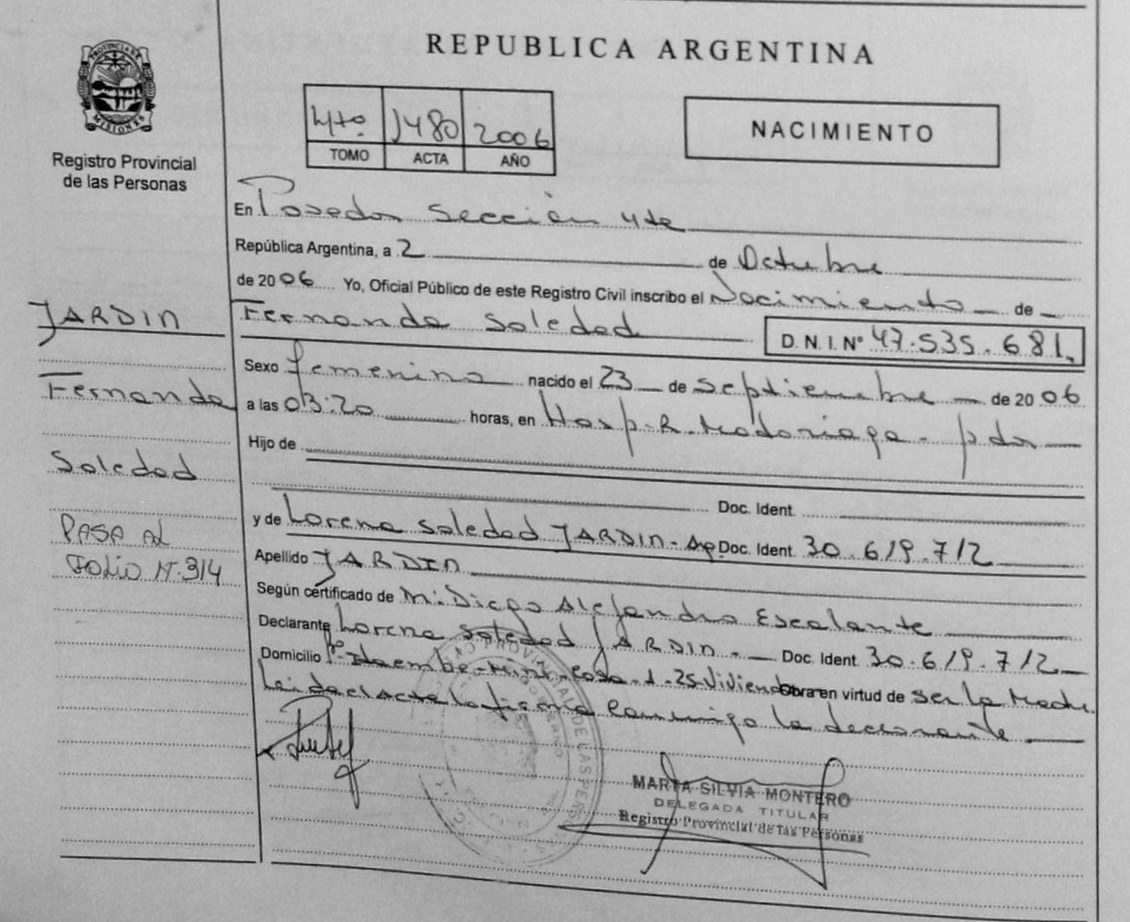 REPUBLICA ARGENTINA
PROVINCIA DE MISIONES
Registro Provincial
de las Personas
4to. 1480 2006
TOMO ACTA AÑO
NACIMIENTO
En Posadas Sección 4ta
República Argentina, a 2 de Octubre
de 2006 Yo, Oficial Público de este Registro Civil inscribo el Nacimiento de
Fernanda Soledad D.N.I. Nº 47.535.681,
JARDIN
Fernanda
Soledad
PASA AL
FOLIO Nº 314
Sexo femenino nacido el 23 de septiembre de 2006
a las 03:20 horas, en Hosp. R. Madariaga - pdas
Hijo de
Doc. Ident.
y de Lorena Soledad JARDIN - Ap. Doc. Ident. 30.619.712
Apellido JARDIN
Según certificado de M: Diego Alejandro Escalante
Declarante Lorena Soledad JARDIN. Doc. Ident. 30.619.712
Domicilio Itaembe Mini - Casa - 1 - 25 Viviendas Obra en virtud de ser la Madre
Leida el Acta la firma conmigo la declarante
MARTA SILVIA MONTERO
DELEGADA TITULAR
Registro Provincial de las Personas